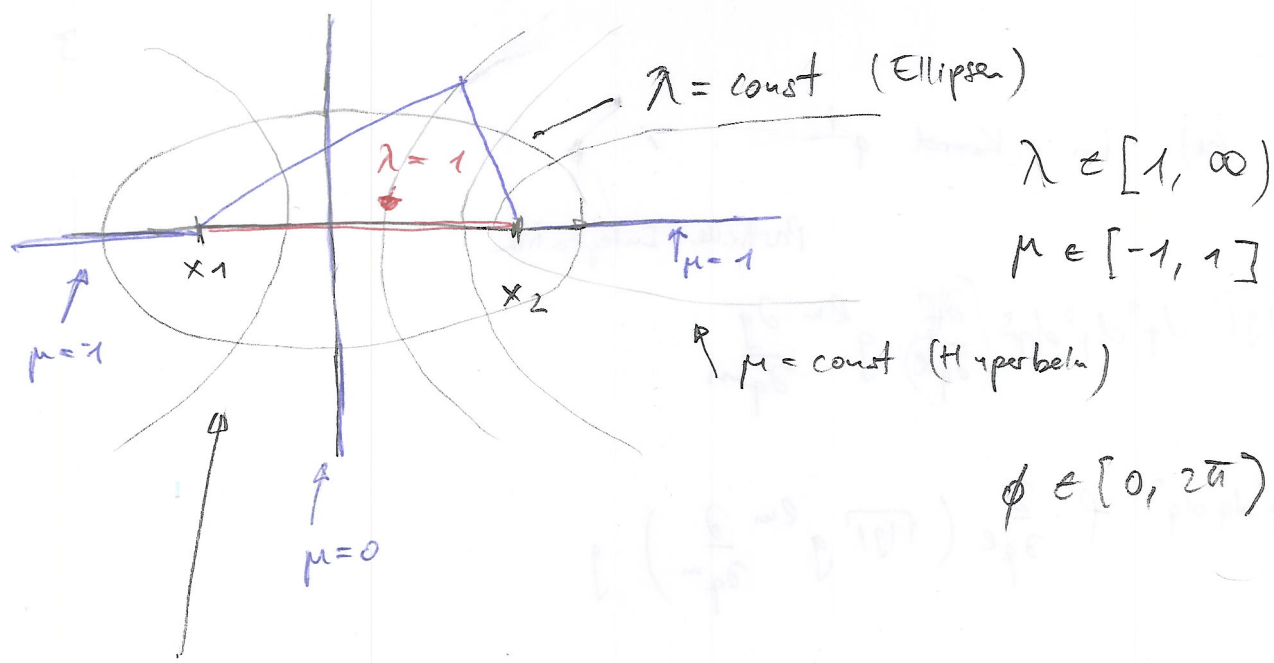 λ = const (Ellipsen)
λ = 1
λ ∈ [1, ∞)
μ ∈ [-1, 1]
x1
x2
μ = 1
μ = -1
μ = const (Hyperbeln)
φ ∈ [0, 2π)
μ = 0